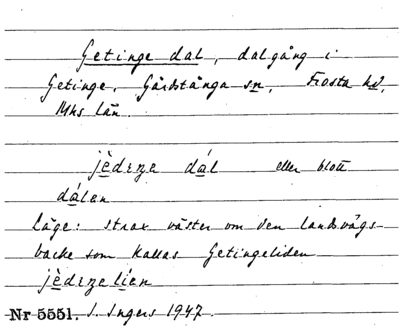 Getinge dal, dalgång i
Getinge, Gårdstånga sn, Frosta hd,
Mhs län.
jèdeze dál eller blott
dálen
Läge: strax väster om den landsvägs-
backe som kallas Getingeliden
jèdezelíen
Nr 5551. I. Ingers 1947.